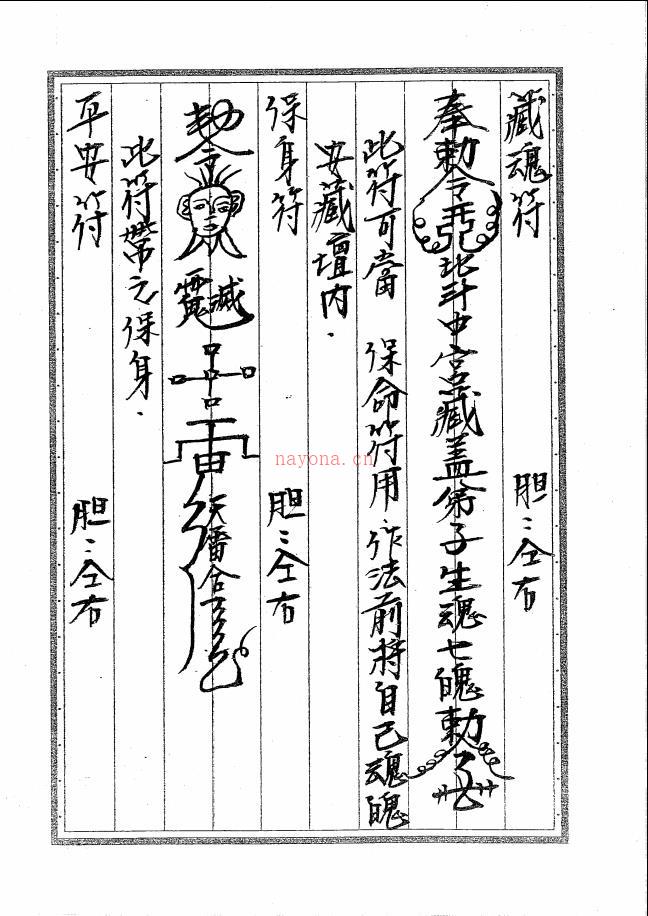 藏魂符 胆:仝右
奉勅令 北斗中宮藏盖弟子生魂七魄勅令
此符可當 保命符用.作法前將自己魂魄
安藏壇内.
保身符 胆:仝右
勅令
此符帶之保身.
平安符 胆:仝右
nayona.cn